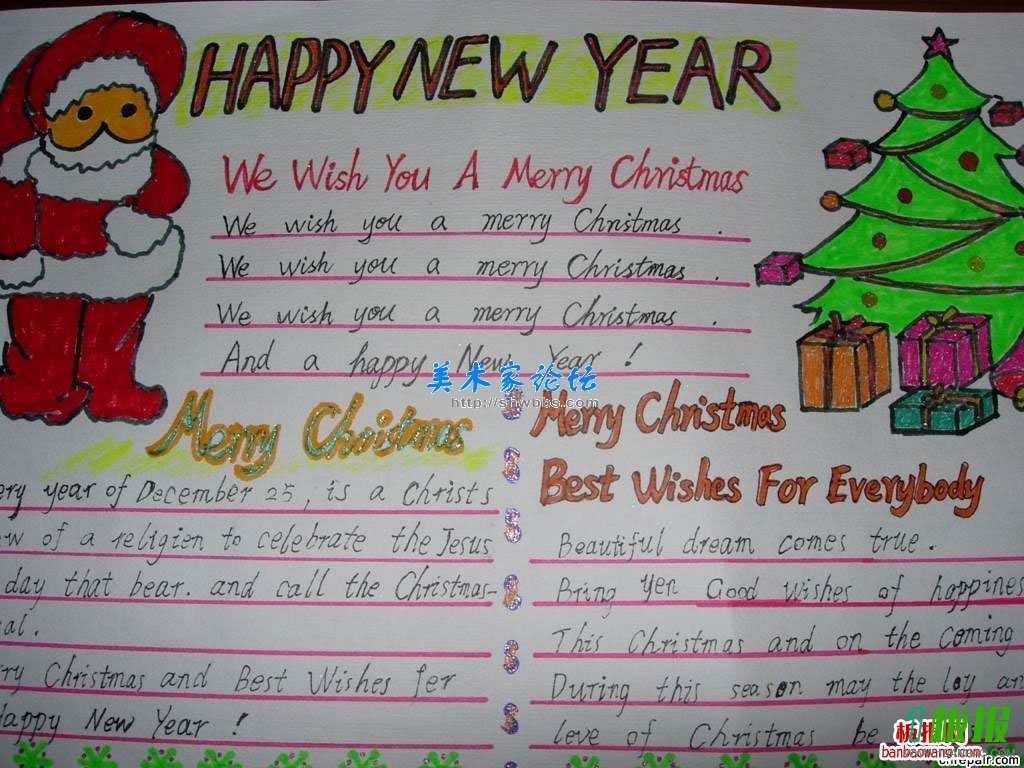 HAPPY NEW YEAR
We Wish You A Merry Christmas
We wish you a merry Christmas .
We wish you a merry Christmas .
We wish you a merry Christmas .
And a happy New Year !
美术家论坛
http://sfiwbbs.com
Merry Christmas
ery year of December 25, is a Christs
w of a religien to celebrate the Jesus
day that bear. and call the Christmas-
al.
ry Christmas and Best Wishes fer
Happy New Year !
Merry Christmas
Best Wishes For Everybody
Beautiful dream comes true.
Bring yen Good Wishes of happines
This Christmas and on the coming
During this season may the loy an
leve of Christmas be
板报
banbaowang.com